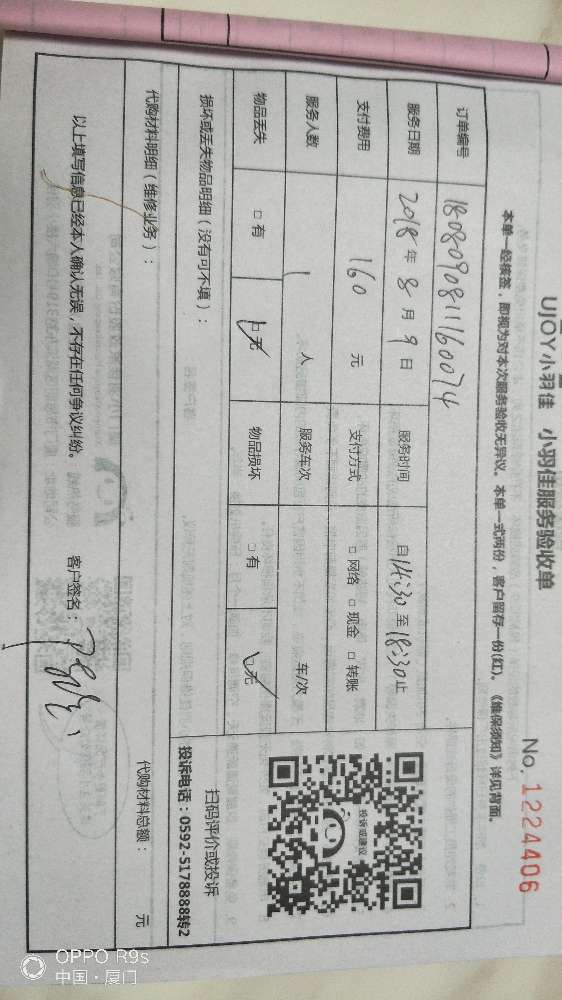 UJOY小羽佳 小羽佳服务验收单
No. 1224406
本单一经核签，即视为对本次服务验收无异议。本单一式两份，客户留存一份(红)。《维保须知》详见背面。
订单编号 1808090811160074
服务日期 2018年8月9日 服务时间 自14:30至18:30止
支付费用 160 元 支付方式 □网络 □现金 □转账
服务人数 1 人 服务车次 车/次
物品丢失 □有 □无 物品损坏 □有 □无
投诉或建议
扫码评价或投诉
投诉电话：0592-5178888转2
损坏或丢失物品明细（没有可不填）：
代购材料明细（维修业务）：
代购材料总额： 元
以上填写信息已经本人确认无误，不存在任何争议纠纷。 客户签名：
OPPO R9s
中国·厦门